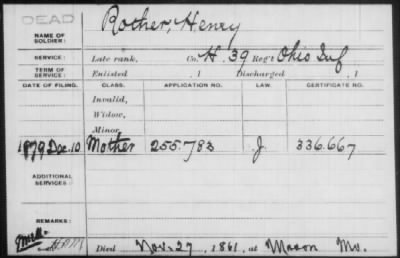 DEAD
Rother, Henry
NAME OF SOLDIER:
SERVICE: Late rank, Co. H. 39 Reg't Ohio Inf
TERM OF SERVICE: Enlisted , 1 Discharged , 1
DATE OF FILING. CLASS. APPLICATION NO. LAW. CERTIFICATE NO.
Invalid,
Widow,
Minor,
1879 Dec. 10 Mother 255.782 J. 336.667
ADDITIONAL SERVICES:
REMARKS:
Died Nov. 27, 1861, at Macon Mo.